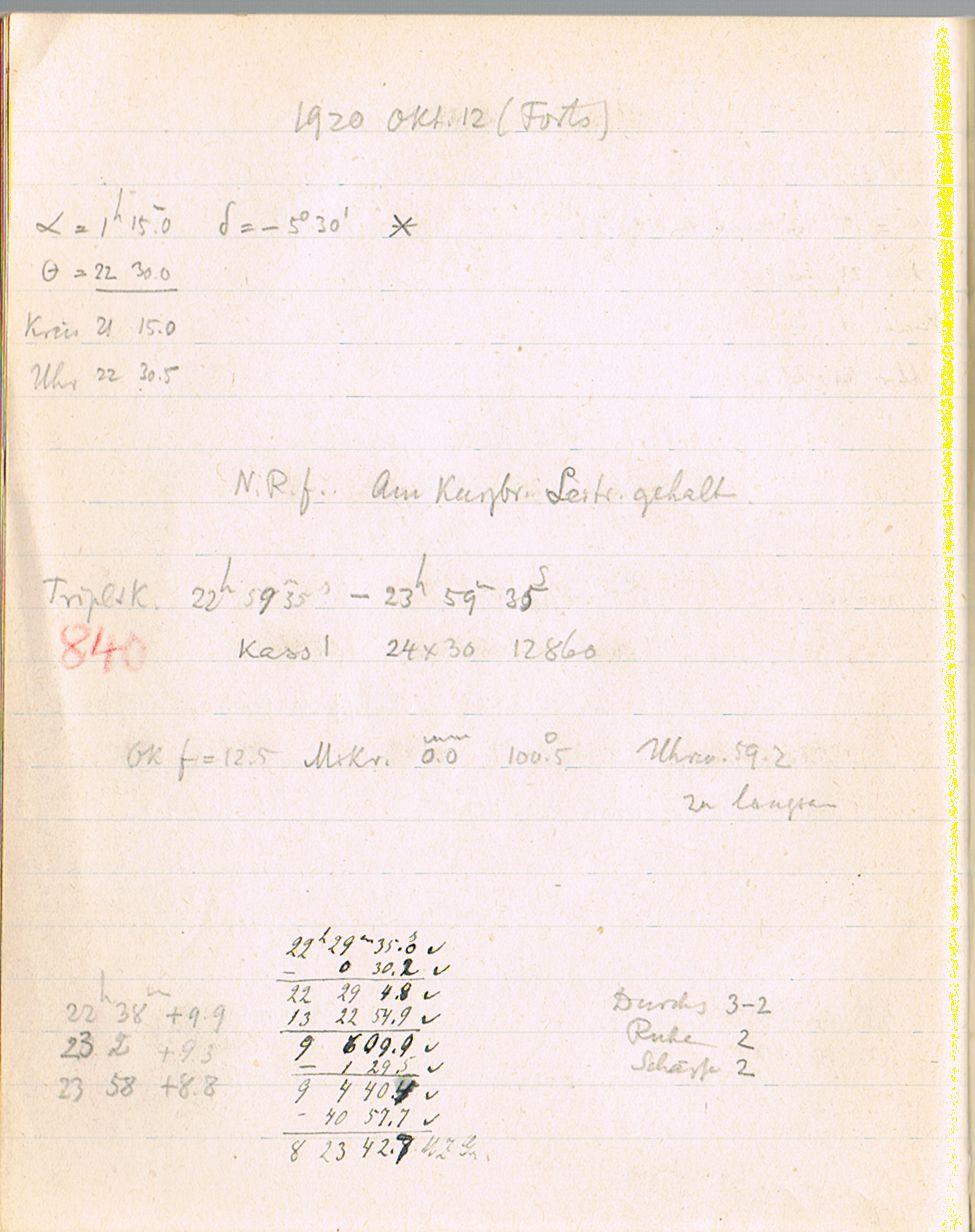 1920 Okt. 12 (Forts)
α = 1ʰ 15.ᵐ0 δ = − 5° 30' *
θ = 22 30.0
Kreis 21 15.0
Uhr 22 30.5
N.R.f. Am Kurzbr. Leitr. gehalt.
Triplet K. 22ʰ 59ᵐ 35ˢ − 23ʰ 59ᵐ 35ˢ
840 Kass 1 24×30 12860
Ok f = 12.5 Mikr. 0.0ᵐᵐ 100.°5 Uhrw. 59.2
zu langsam
22ʰ 29ᵐ 35.ˢ0 ✓
− 0 30.2 ✓
22 29 4.8 ✓
13 22 54.9 ✓
9 6 09.9 ✓
− 1 29.5 ✓
9 4 40.4 ✓
− 40 57.7 ✓
8 23 42.7 MZ Gr.
22ʰ 38ᵐ +9.9
23 2 +9.3
23 58 +8.8
Durchs 3-2
Ruhe 2
Schärfe 2